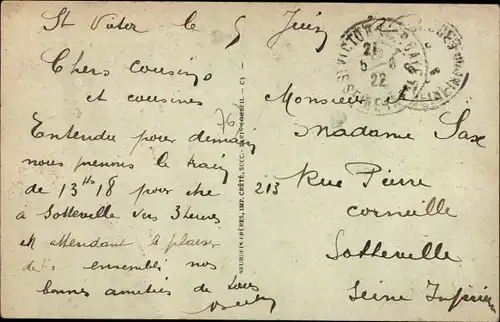 St Victor le 5 Juin
Chers cousins
et cousines
Entendu pour demain
nous prenons le train
de 13hs 18 pour être
à Sotteville vers 3 heures
en attendant le plaisir
d'être ensemble nos
bonnes amitiés de tous
76
NEURDEIN FRÈRES, IMP. CRÉTÉ, SUCC. PARIS-CORBEIL - C1 -
ST VICTOR
21
5 6
22
Monsieur et
Madame Sax
213 Rue Pierre
Corneille
Sotteville
Seine Inférieure